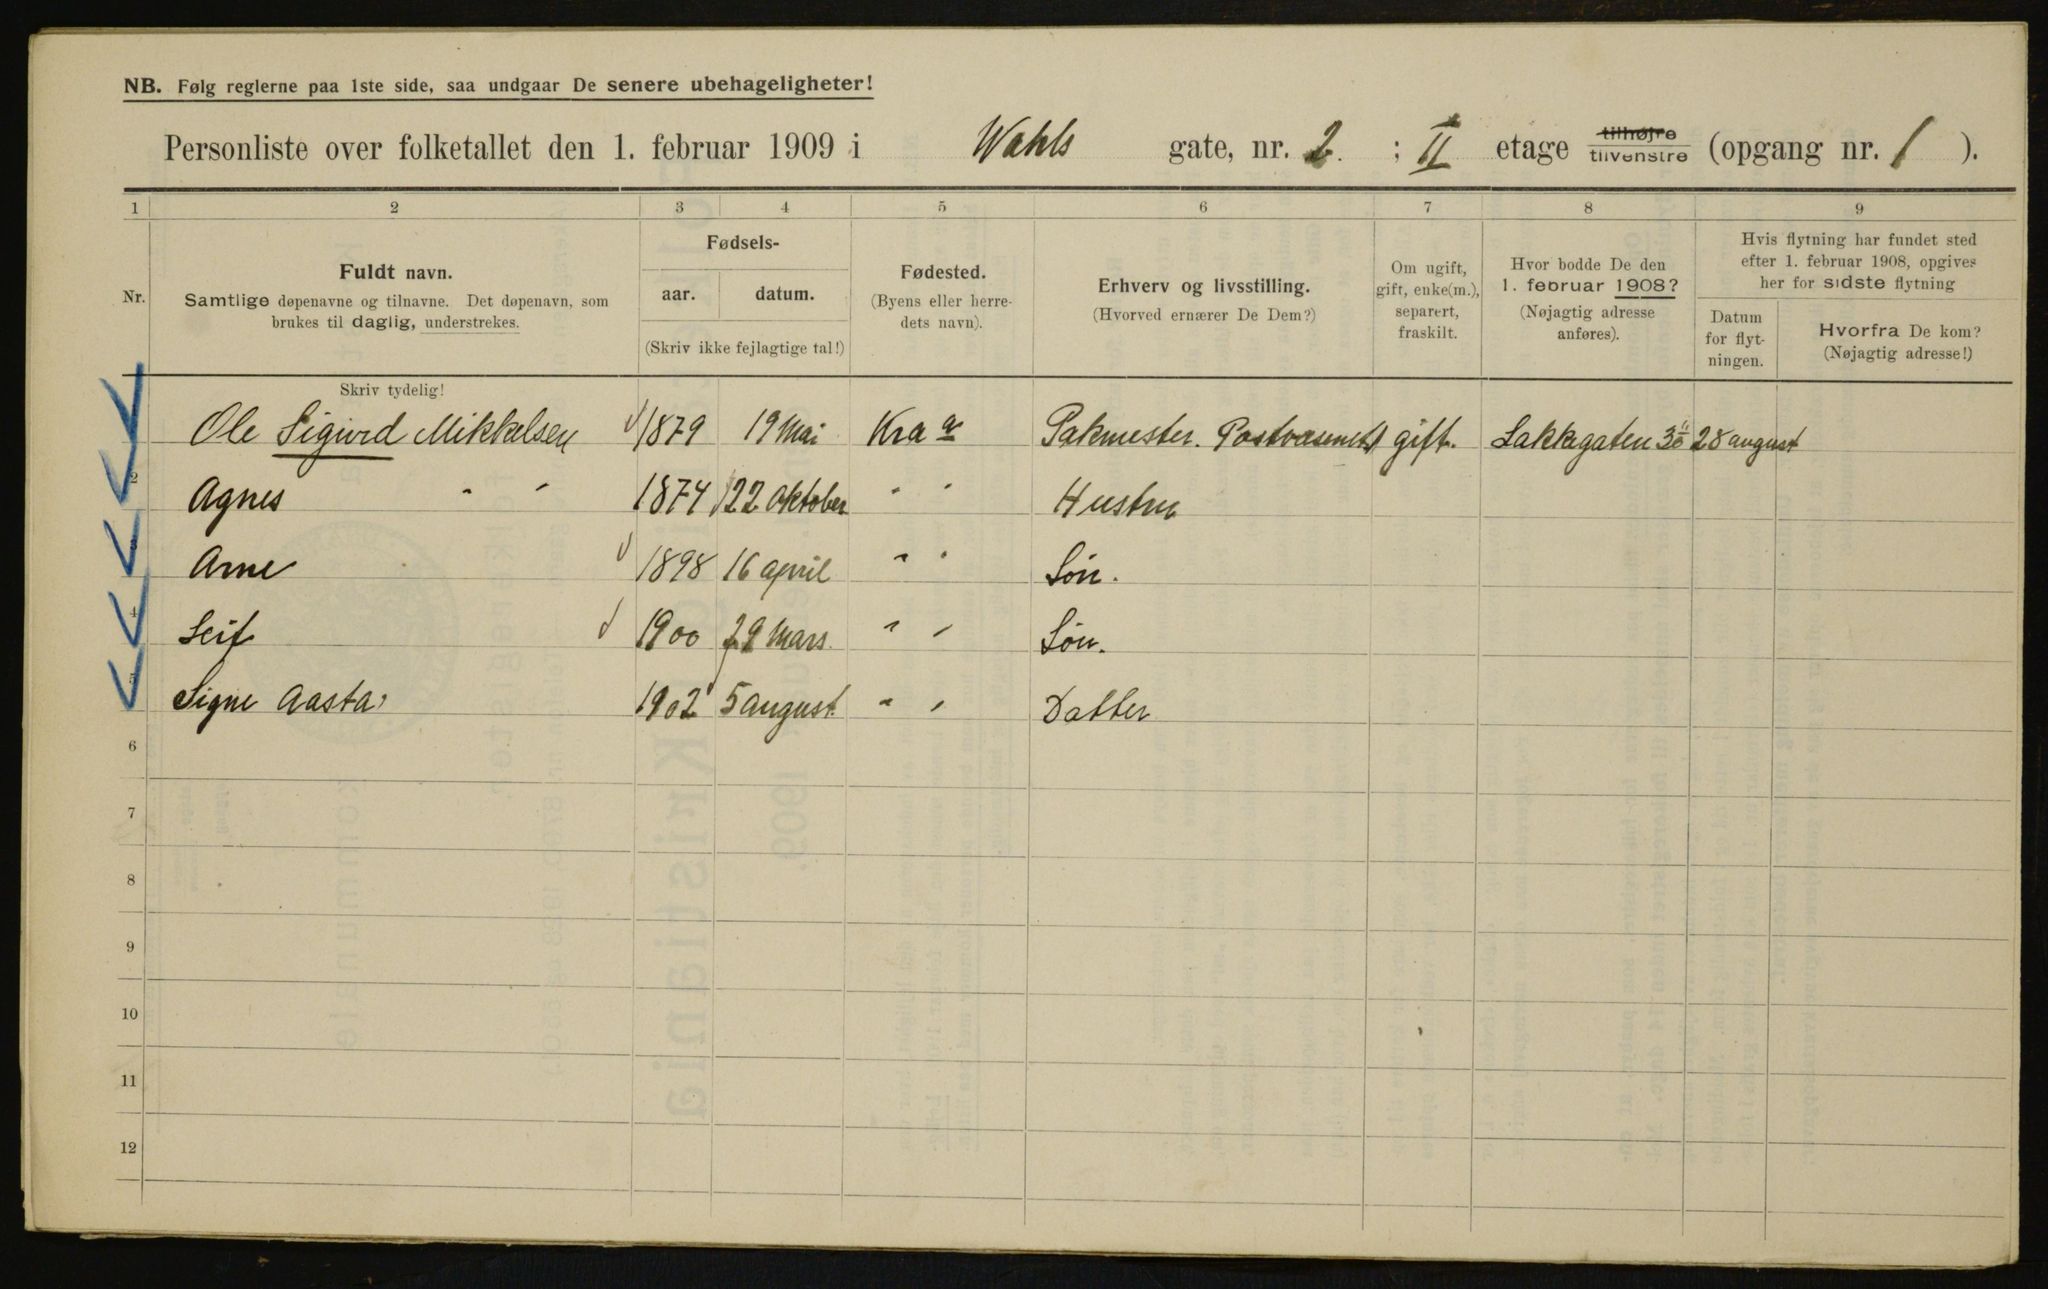 NB. Følg reglerne paa 1ste side, saa undgaar De senere ubehageligheter!
Personliste over folketallet den 1. februar 1909 i Wahls gate, nr. 2. ; II etage tilhøjre tilvenstre (opgang nr. 1 ).
1 2 3 4 5 6 7 8 9
Nr.
Fuldt navn.
Samtlige døpenavne og tilnavne. Det døpenavn, som
brukes til daglig, understrekes.
Fødsels-
aar. datum.
(Skriv ikke fejlagtige tal!)
Fødested.
(Byens eller herre-
dets navn).
Erhverv og livsstilling.
(Hvorved ernærer De Dem?)
Om ugift,
gift, enke(m.),
separert,
fraskilt.
Hvor bodde De den
1. februar 1908?
(Nøjagtig adresse
anføres).
Hvis flytning har fundet sted
efter 1. februar 1908, opgives
her for sidste flytning
Datum
for flyt-
ningen.
Hvorfra De kom?
(Nøjagtig adresse!)
Skriv tydelig!
Ole Sigurd Mikkelsen 1879 19 Mai Kra a Pakmester. Postvæsenet gift. Lakkegaten 30 28 august
2 Agnes " " 1874 22 Oktober " " Hustru
3 Arne 1898 16 april " " Søn.
4 Leif 1900 29 Mars. " " Søn.
5 Signe Aasta 1902 5 august. " " Datter
6
7
8
9
10
11
12